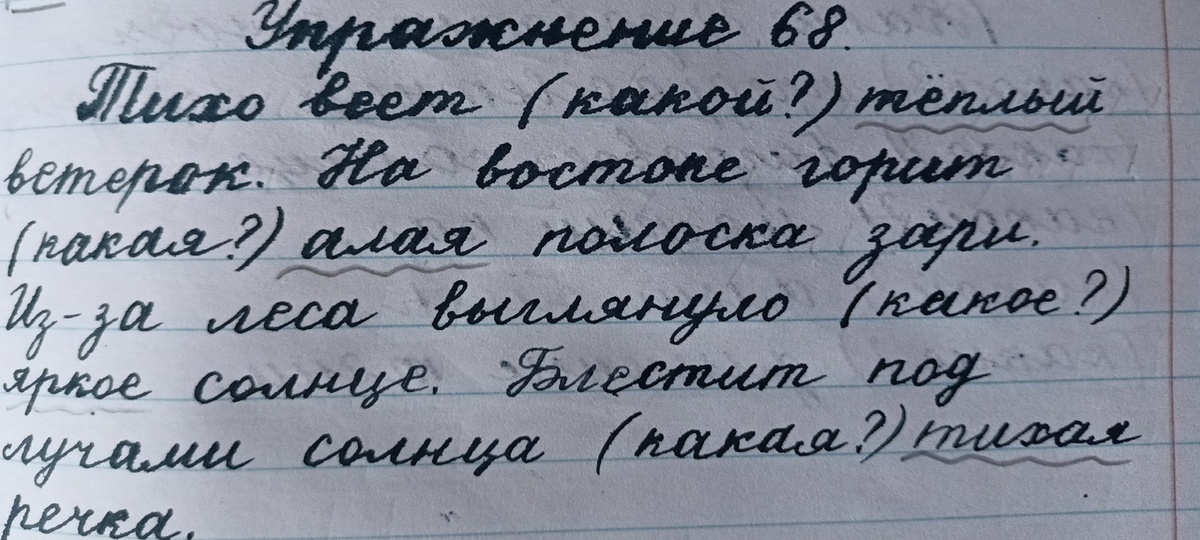 Упражнение 68.
Тихо веет (какой?) тёплый
ветерок. На востоке горит
(какая?) алая полоска зари.
Из-за леса выглянуло (какое?)
яркое солнце. Блестит под
лучами солнца (какая?) тихая
речка.